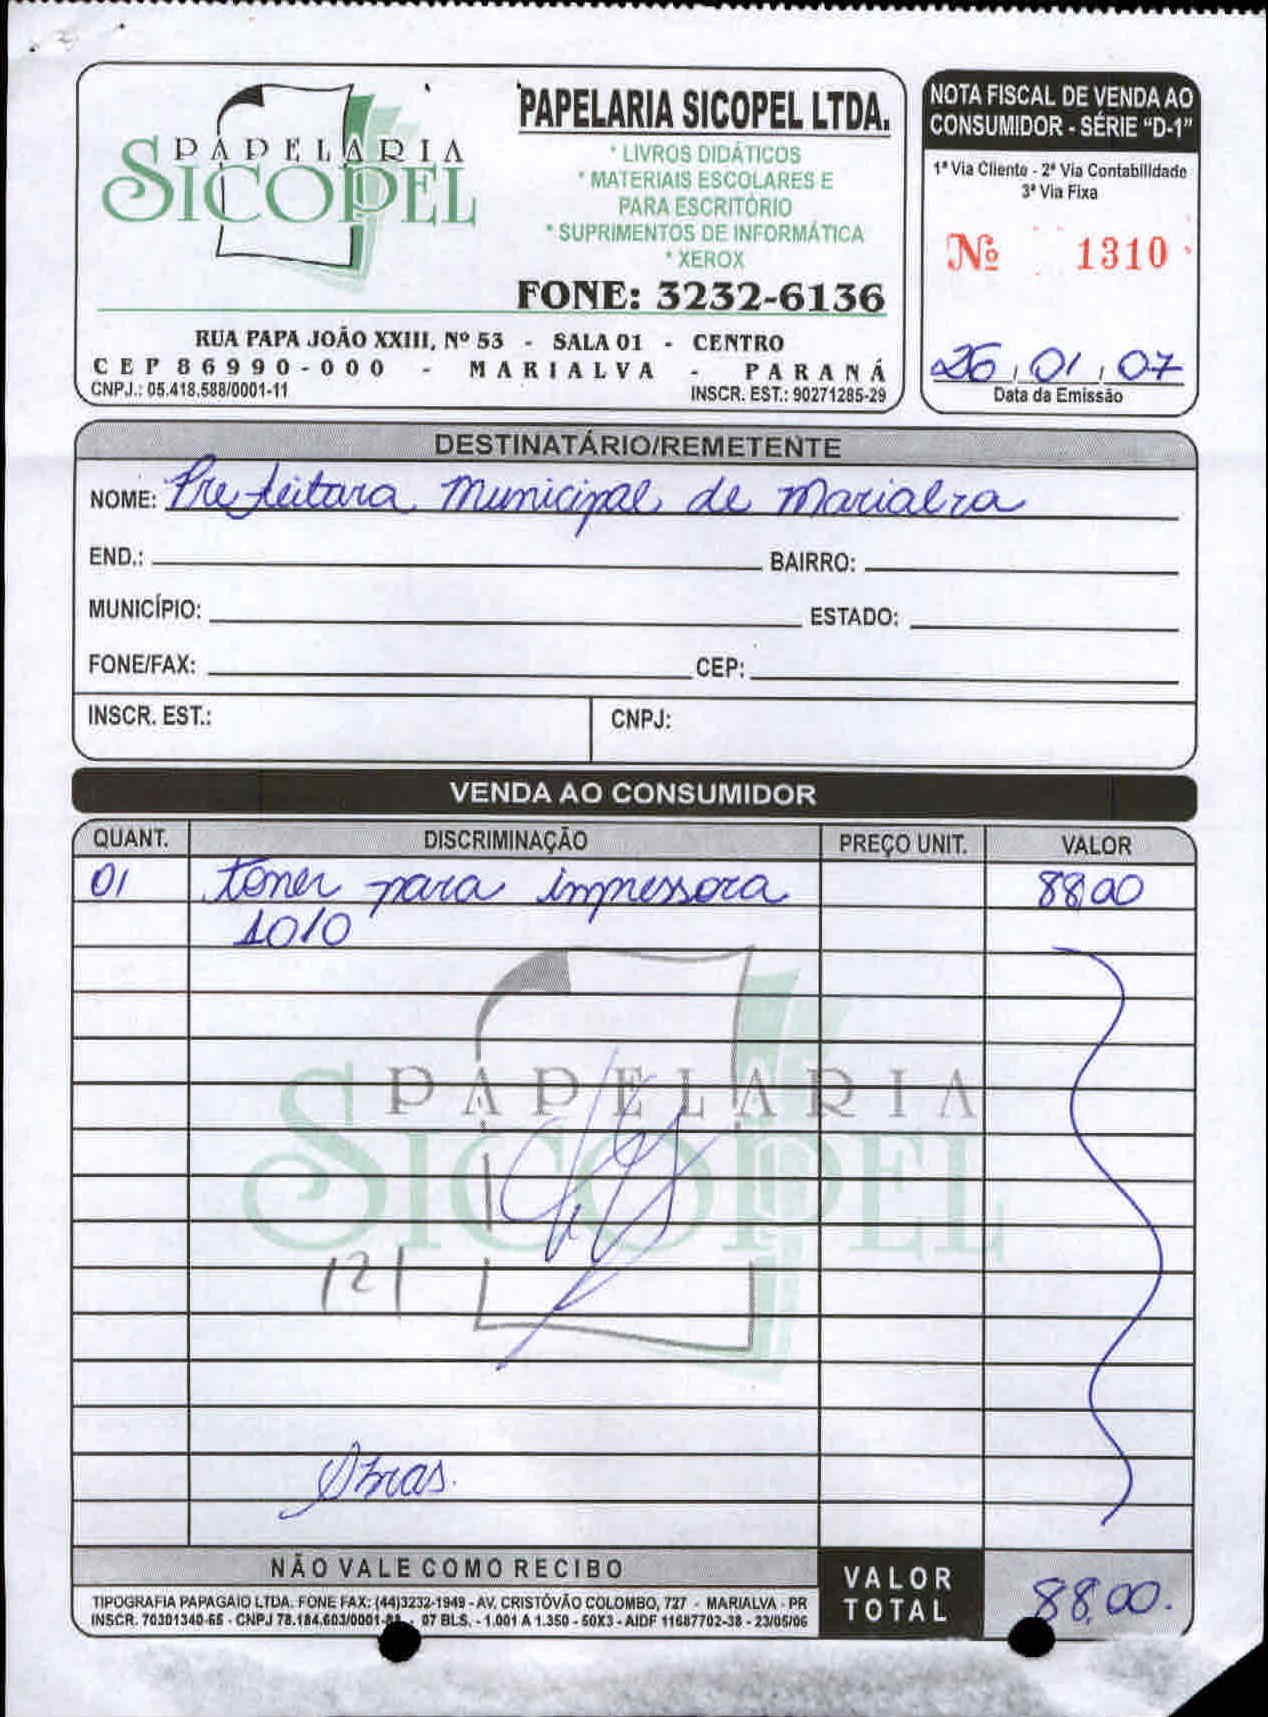 PAPELARIA
SICOPEL
PAPELARIA SICOPEL LTDA.
* LIVROS DIDÁTICOS
* MATERIAIS ESCOLARES E
PARA ESCRITÓRIO
* SUPRIMENTOS DE INFORMÁTICA
* XEROX
FONE: 3232-6136
RUA PAPA JOÃO XXIII, Nº 53 - SALA 01 - CENTRO
CEP 86990-000 - MARIALVA - PARANÁ
CNPJ.: 05.418.588/0001-11 INSCR. EST.: 90271285-29
NOTA FISCAL DE VENDA AO
CONSUMIDOR - SÉRIE "D-1"
1ª Via Cliente - 2ª Via Contabilidade
3ª Via Fixa
Nº 1310
26, 01, 07
Data da Emissão
DESTINATÁRIO/REMETENTE
NOME: Prefeitura Municipal de Marialva
END.: BAIRRO:
MUNICÍPIO: ESTADO:
FONE/FAX: CEP:
INSCR. EST.: CNPJ:
VENDA AO CONSUMIDOR
QUANT. DISCRIMINAÇÃO PREÇO UNIT. VALOR
01 toner para impressora 88,00
1010
PAPELARIA
SICOPEL
121
Obras.
NÃO VALE COMO RECIBO
TIPOGRAFIA PAPAGAIO LTDA. FONE FAX: (44)3232-1949 - AV. CRISTÓVÃO COLOMBO, 727 - MARIALVA - PR
INSCR. 70301340-65 - CNPJ 78.184.603/0001- - 07 BLS. - 1.001 A 1.350 - 50X3 - AIDF 11687702-38 - 23/05/06
VALOR
TOTAL
88,00.